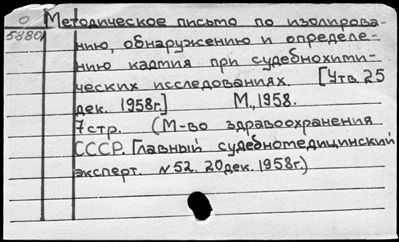 О Методическое письмо по изолирова-
5880 нию, обнаружению и определе-
нию кадмия при судебнохими-
ческих исследованиях. [Утв. 25
дек. 1958г.] М., 1958.
7 стр. (М-во здравоохранения
СССР. Главный судебномедицинский
эксперт. №52. 20 дек. 1958г.)